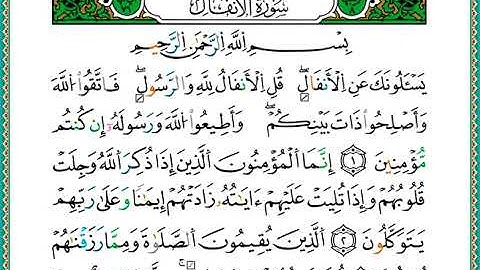 سُورَةُ الأَنفَالِ
بِسْمِ اللَّهِ الرَّحْمَٰنِ الرَّحِيمِ
يَسْـَٔلُونَكَ عَنِ الْأَنفَالِ ۖ قُلِ الْأَنفَالُ لِلَّهِ وَالرَّسُولِ ۖ فَاتَّقُوا اللَّهَ
وَأَصْلِحُوا ذَاتَ بَيْنِكُمْ ۖ وَأَطِيعُوا اللَّهَ وَرَسُولَهُ إِن كُنتُم
مُّؤْمِنِينَ ١ إِنَّمَا الْمُؤْمِنُونَ الَّذِينَ إِذَا ذُكِرَ اللَّهُ وَجِلَتْ
قُلُوبُهُمْ وَإِذَا تُلِيَتْ عَلَيْهِمْ ءَايَٰتُهُ زَادَتْهُمْ إِيمَٰنًا وَعَلَىٰ رَبِّهِمْ
يَتَوَكَّلُونَ ٢ الَّذِينَ يُقِيمُونَ الصَّلَوٰةَ وَمِمَّا رَزَقْنَٰهُمْ